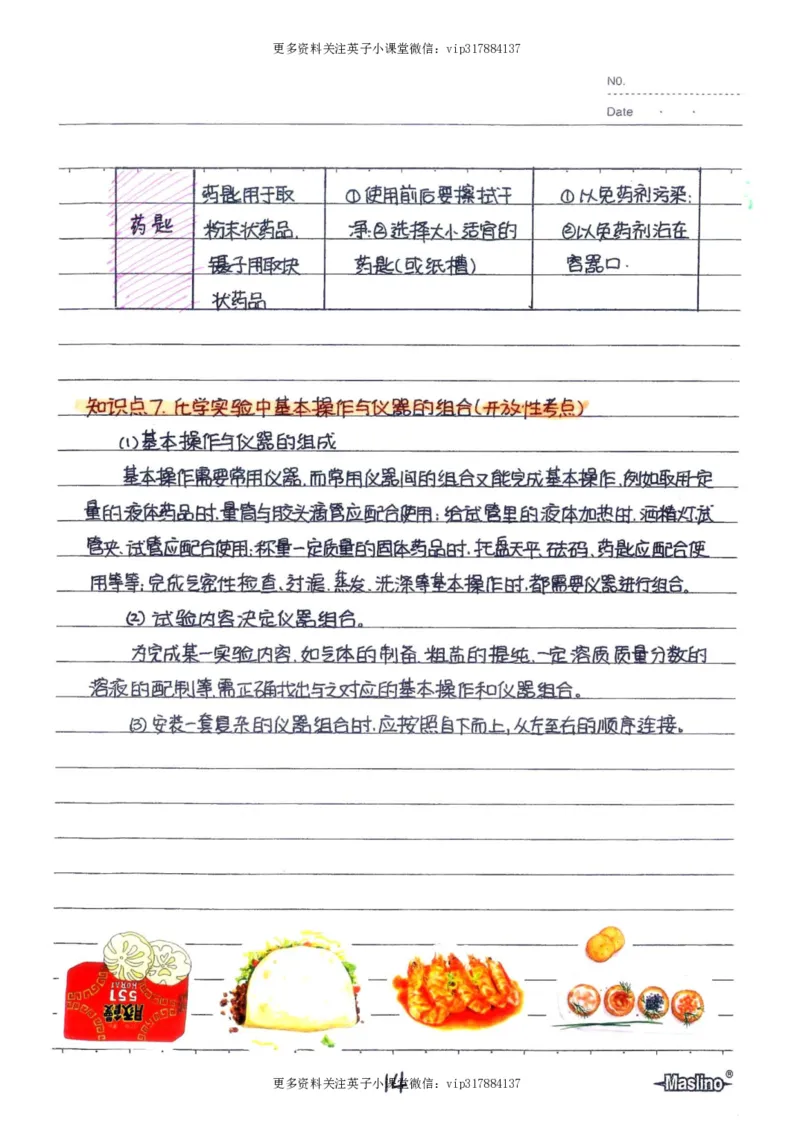 更多资料关注英子小课堂微信：vip317884137
NO.
Date
药匙
药匙用于取
粉末状药品,
镊子用取块
状药品
①使用前后要擦拭干
净;②选择大小适宜的
药匙(或纸槽)
①以免药剂污染;
②以免药剂沾在
容器口.
知识点7. 化学实验中基本操作与仪器的组合(开放性考点)
(1)基本操作与仪器的组成
基本操作需要常用仪器,而常用仪器间的组合又能完成基本操作,例如取用定
量的液体药品时,量筒与胶头滴管应配合使用;给试管里的液体加热时,酒精灯,试
管夹、试管应配合使用;称量一定质量的固体药品时,托盘天平、砝码、药匙应配合使
用等等;完成气密性检查、过滤、蒸发、洗涤等基本操作时,都需要仪器进行组合。
(2) 试验内容决定仪器组合。
为完成某一实验内容,如气体的制备、粗盐的提纯、一定溶质质量分数的
溶液的配制等,需正确找出与之对应的基本操作和仪器组合。
(3)安装一套复杂的仪器组合时,应按照自下而上,从左至右的顺序连接。
551
HORAI
更多资料关注英子小课堂微信：vip317884137
14
Maslino®